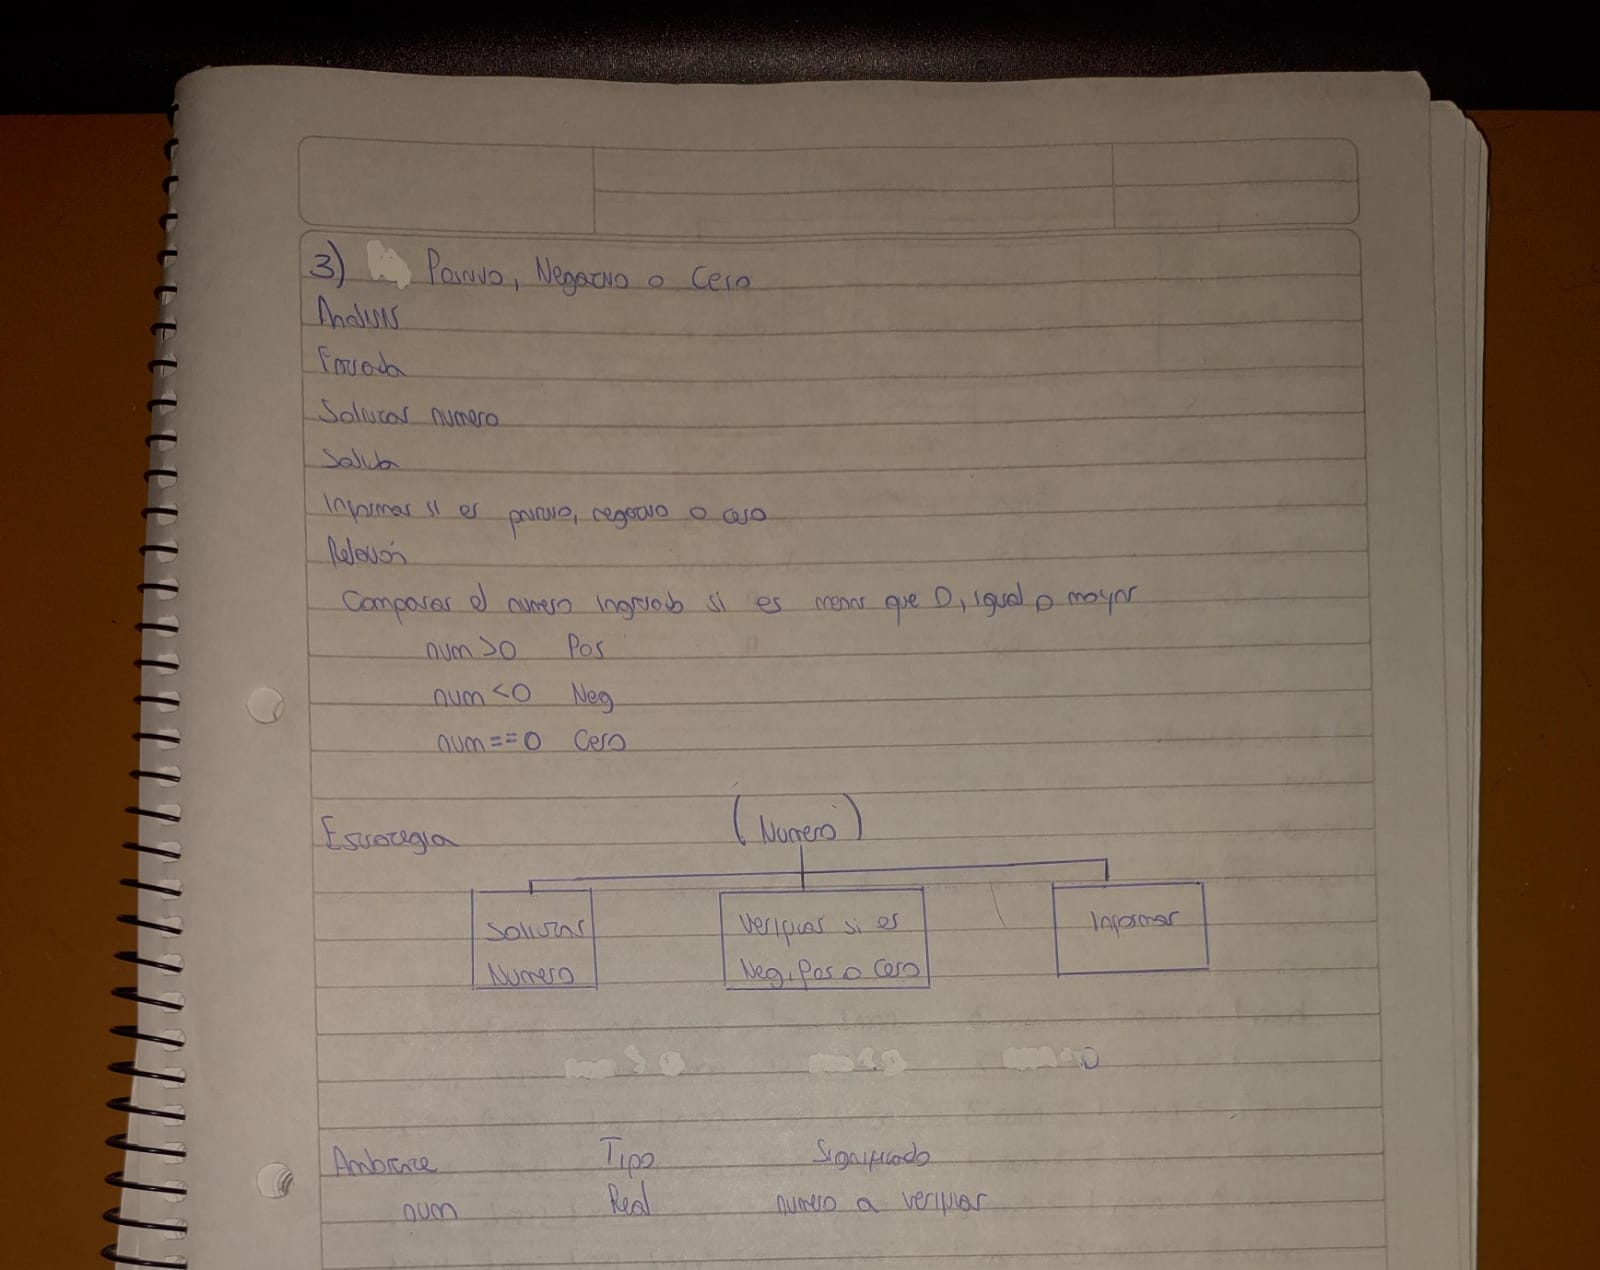 3) Positivo, Negativo o Cero
Analisis
Entrada
Solicitar numero
Salida
Informar si es positivo, negativo o cero
Relación
Comparar el numero ingresado si es menor que 0, igual o mayor
num >0 Pos
num <0 Neg
num ==0 Cero
Estrategia
(Numero)
Solicitar Numero
Verificar si es Neg, Pos o Cero
Informar
0
Ambiente Tipo Significado
num Real numero a verificar